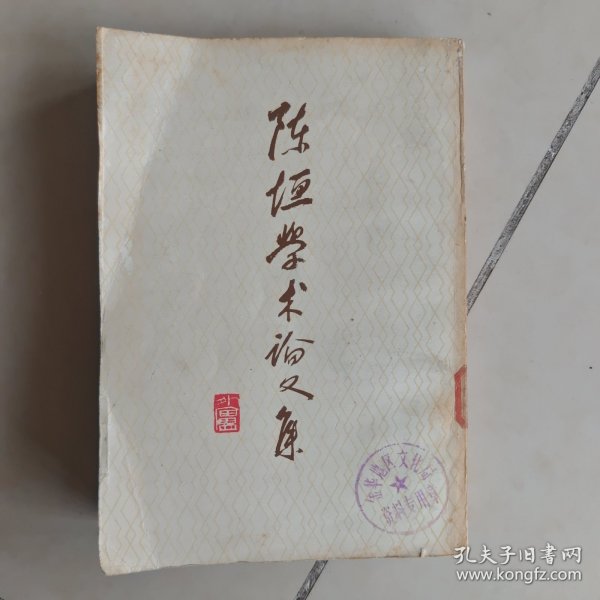 陈垣学术论文集
金华地区文化局
资料专用章
孔夫子旧书网
www.kongfz.com